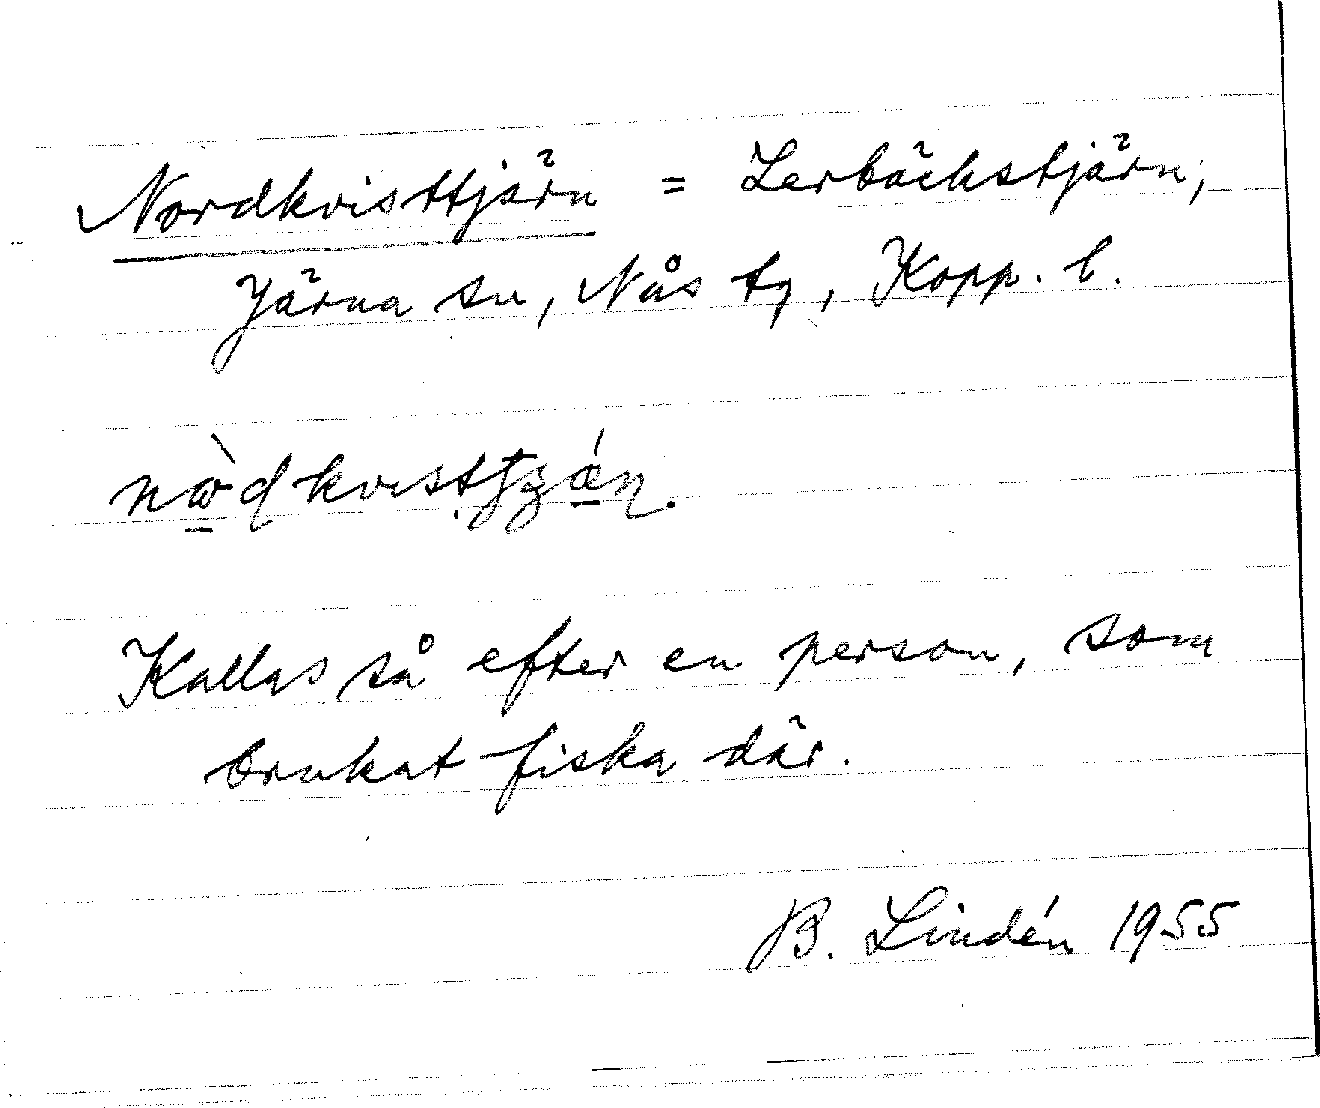 Nordkvisttjärn = Lerbäckstjärn,
Järna sn, Nås tg, Kopp. l.
Kallas så efter en person, som
brukat fiska där.
B. Lindén 1955